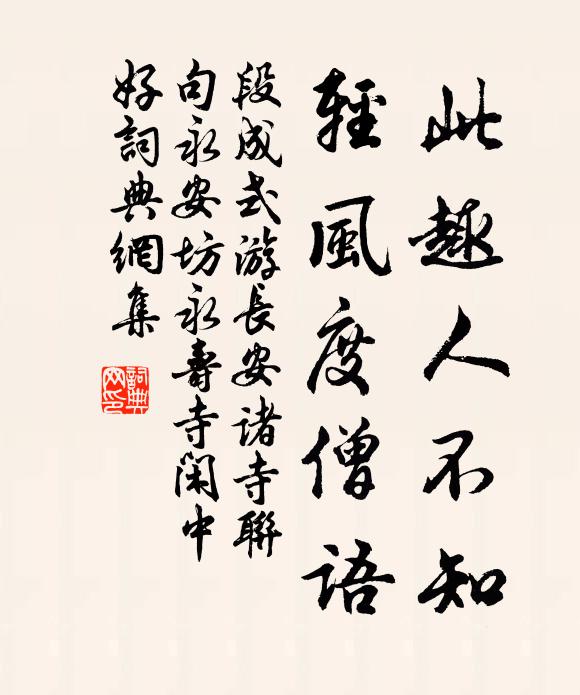 此趣人不知
輕風度僧語
段成式游長安諸寺聯
句永安坊永壽寺閑中
好詞典網集
詞典
网印